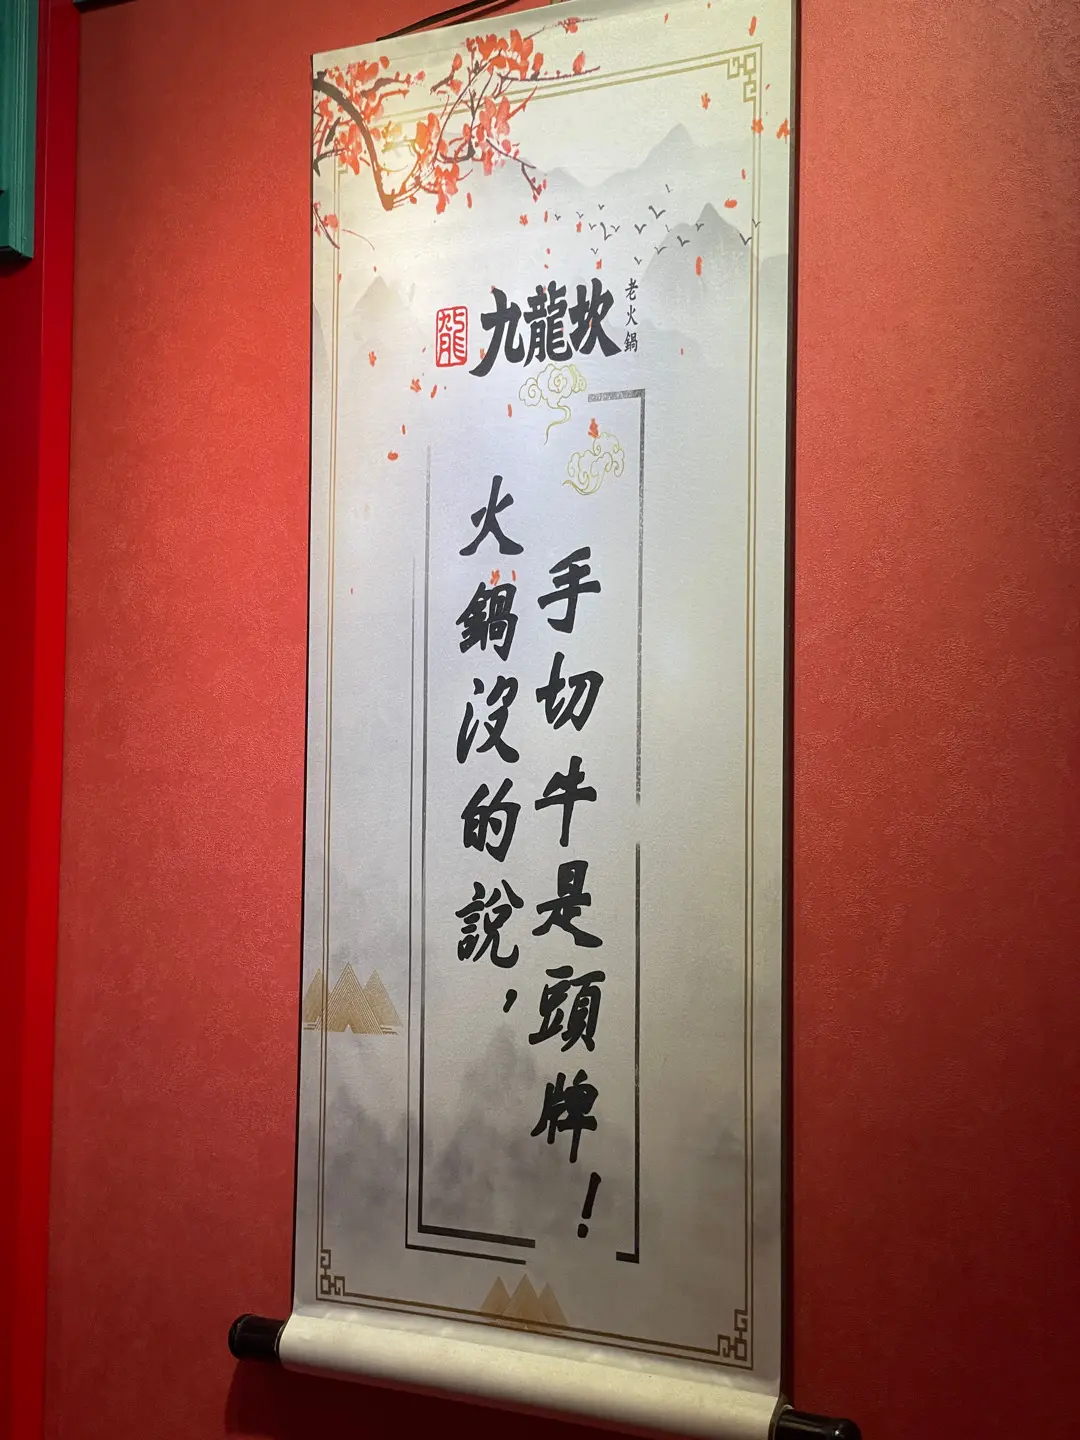 龍
九龍坎
老火鍋
火鍋沒的說，
手切牛是頭牌！